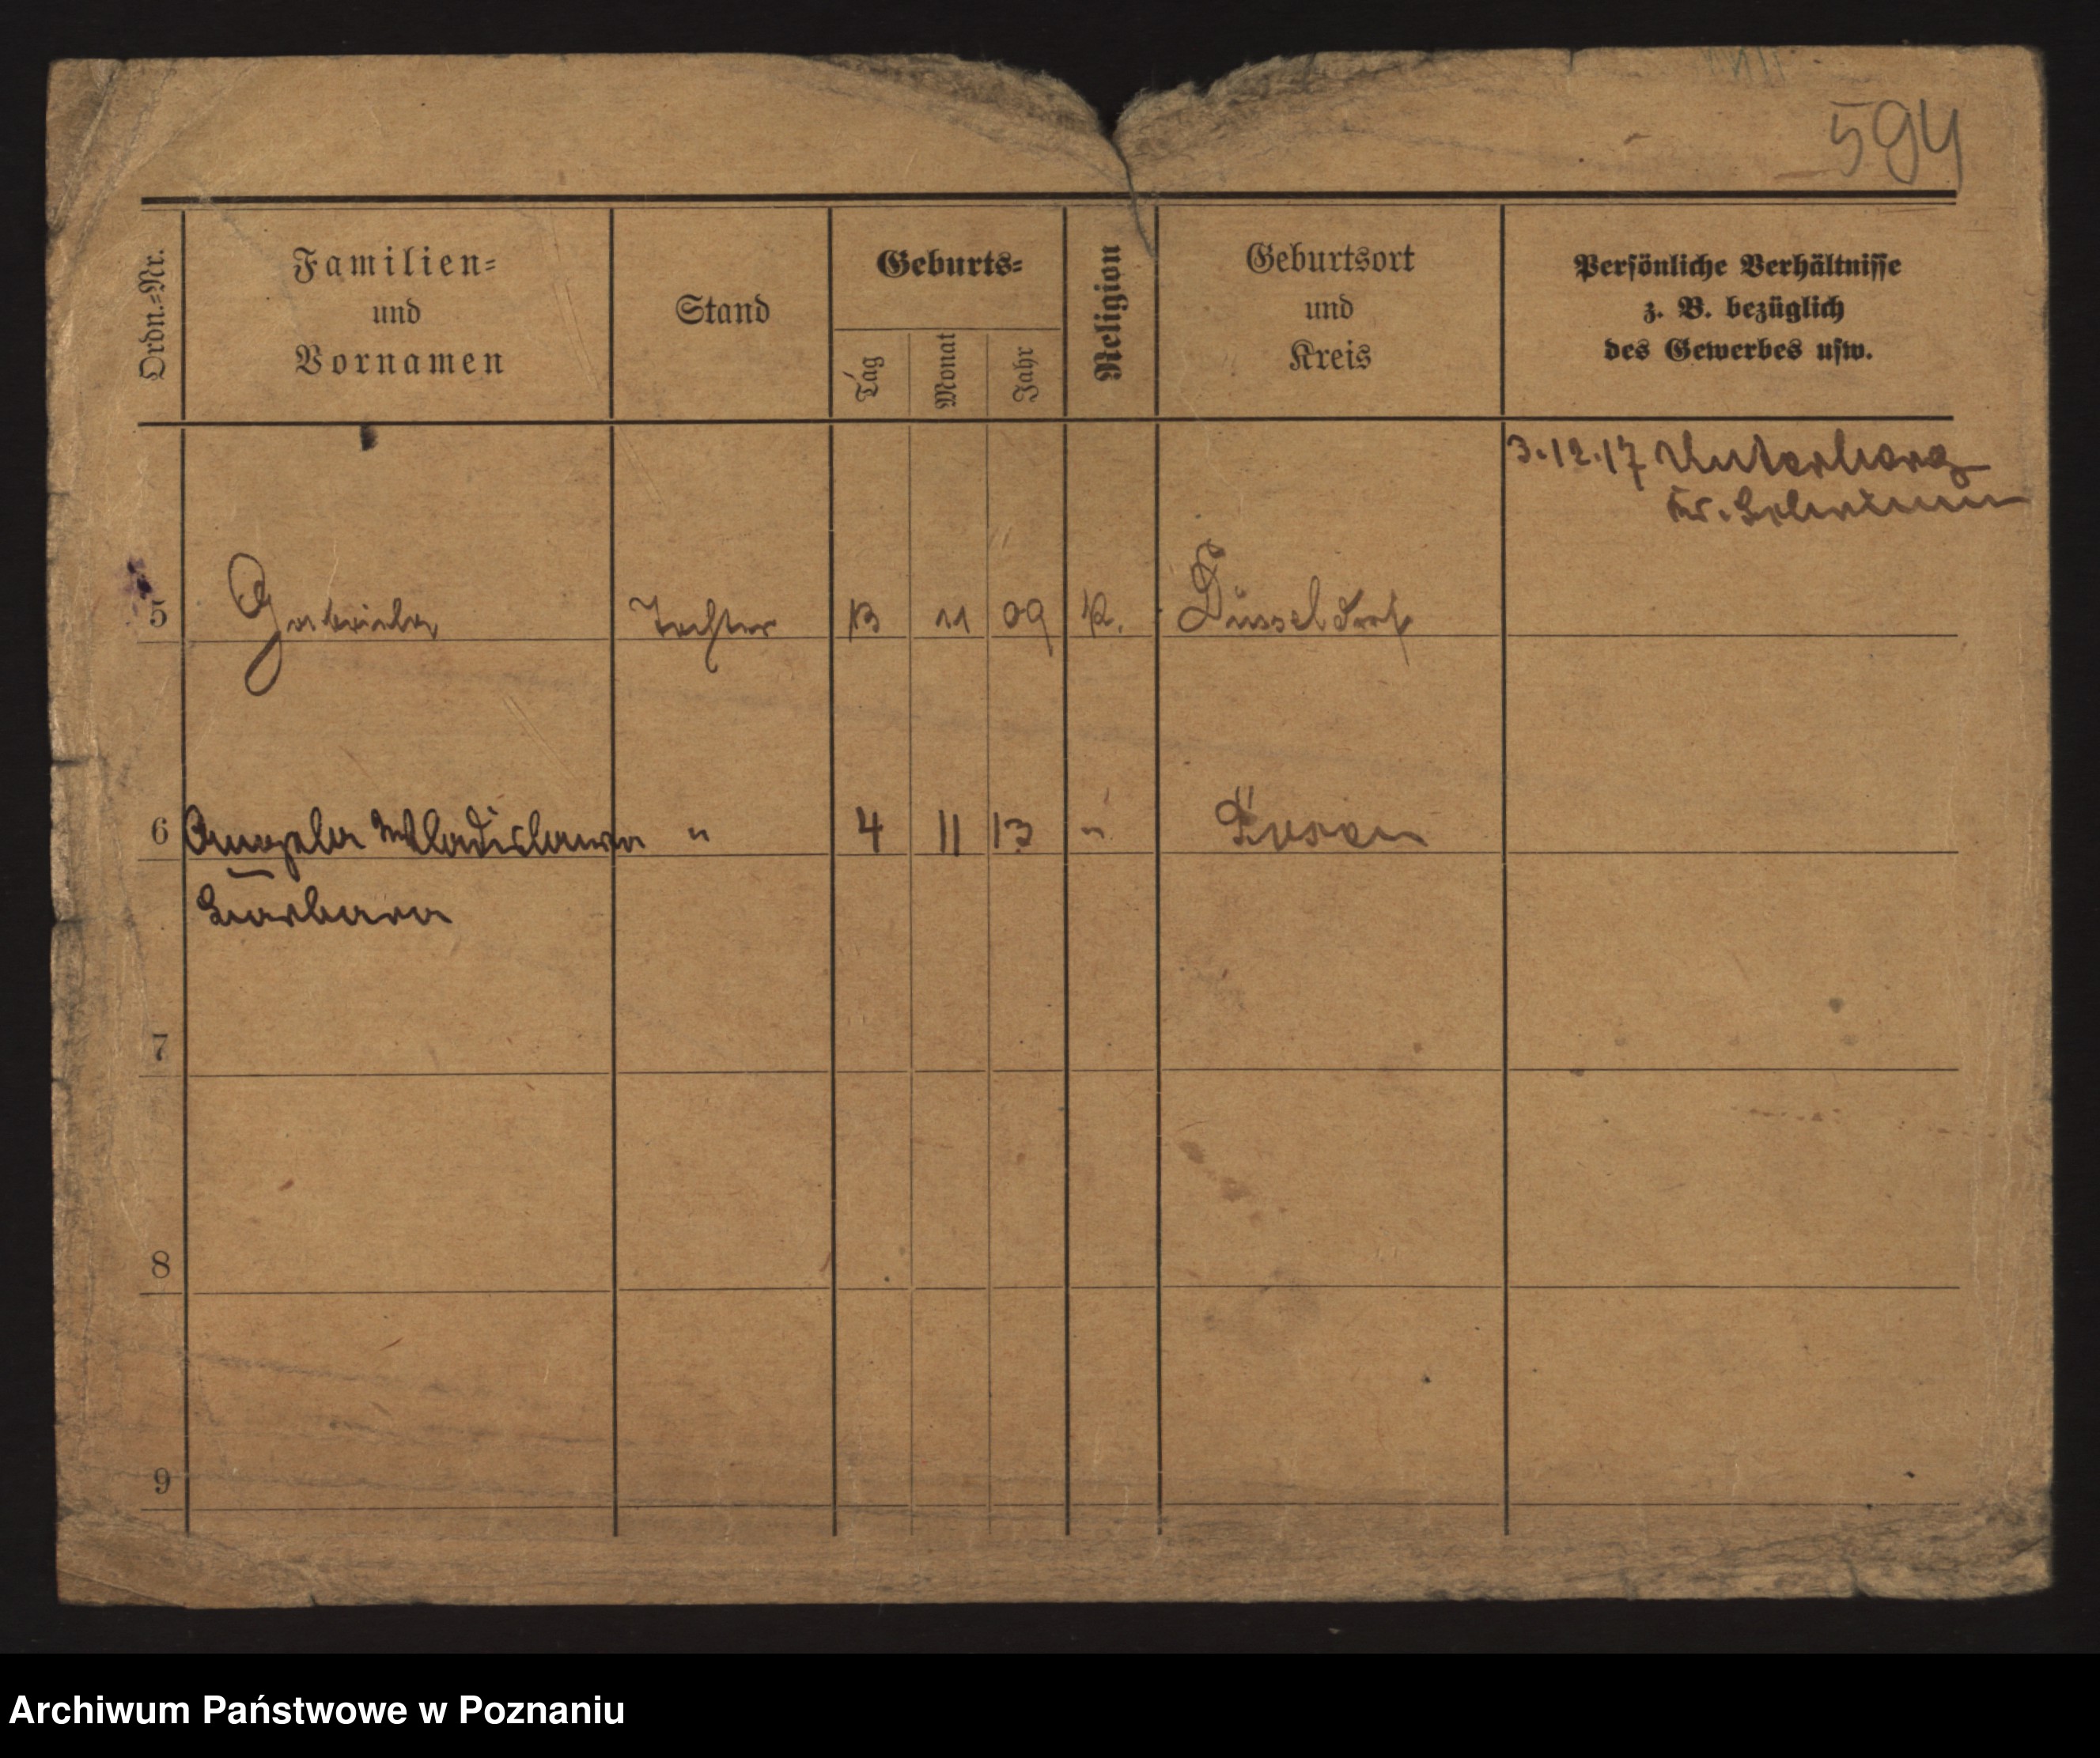 594
Ordn.=Nr.
Familien=
und
Vornamen
Stand
Geburts=
Tag
Monat
Jahr
Religion
Geburtsort
und
Kreis
Persönliche Verhältnisse
z. B. bezüglich
des Gewerbes usw.
3.12.17 Unterberg
Kr. Schrimm
5 Gabriela Tochter 13 11 09 K. Düsseldorf
6 Angela Wladislawa " 4 11 13 " Posen
Barbara
7
8
9
Archiwum Państwowe w Poznaniu